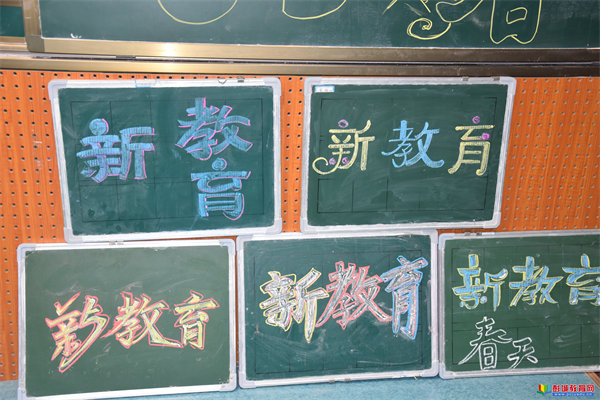 新教育
新教育
新教育
新教育
新教育
春天